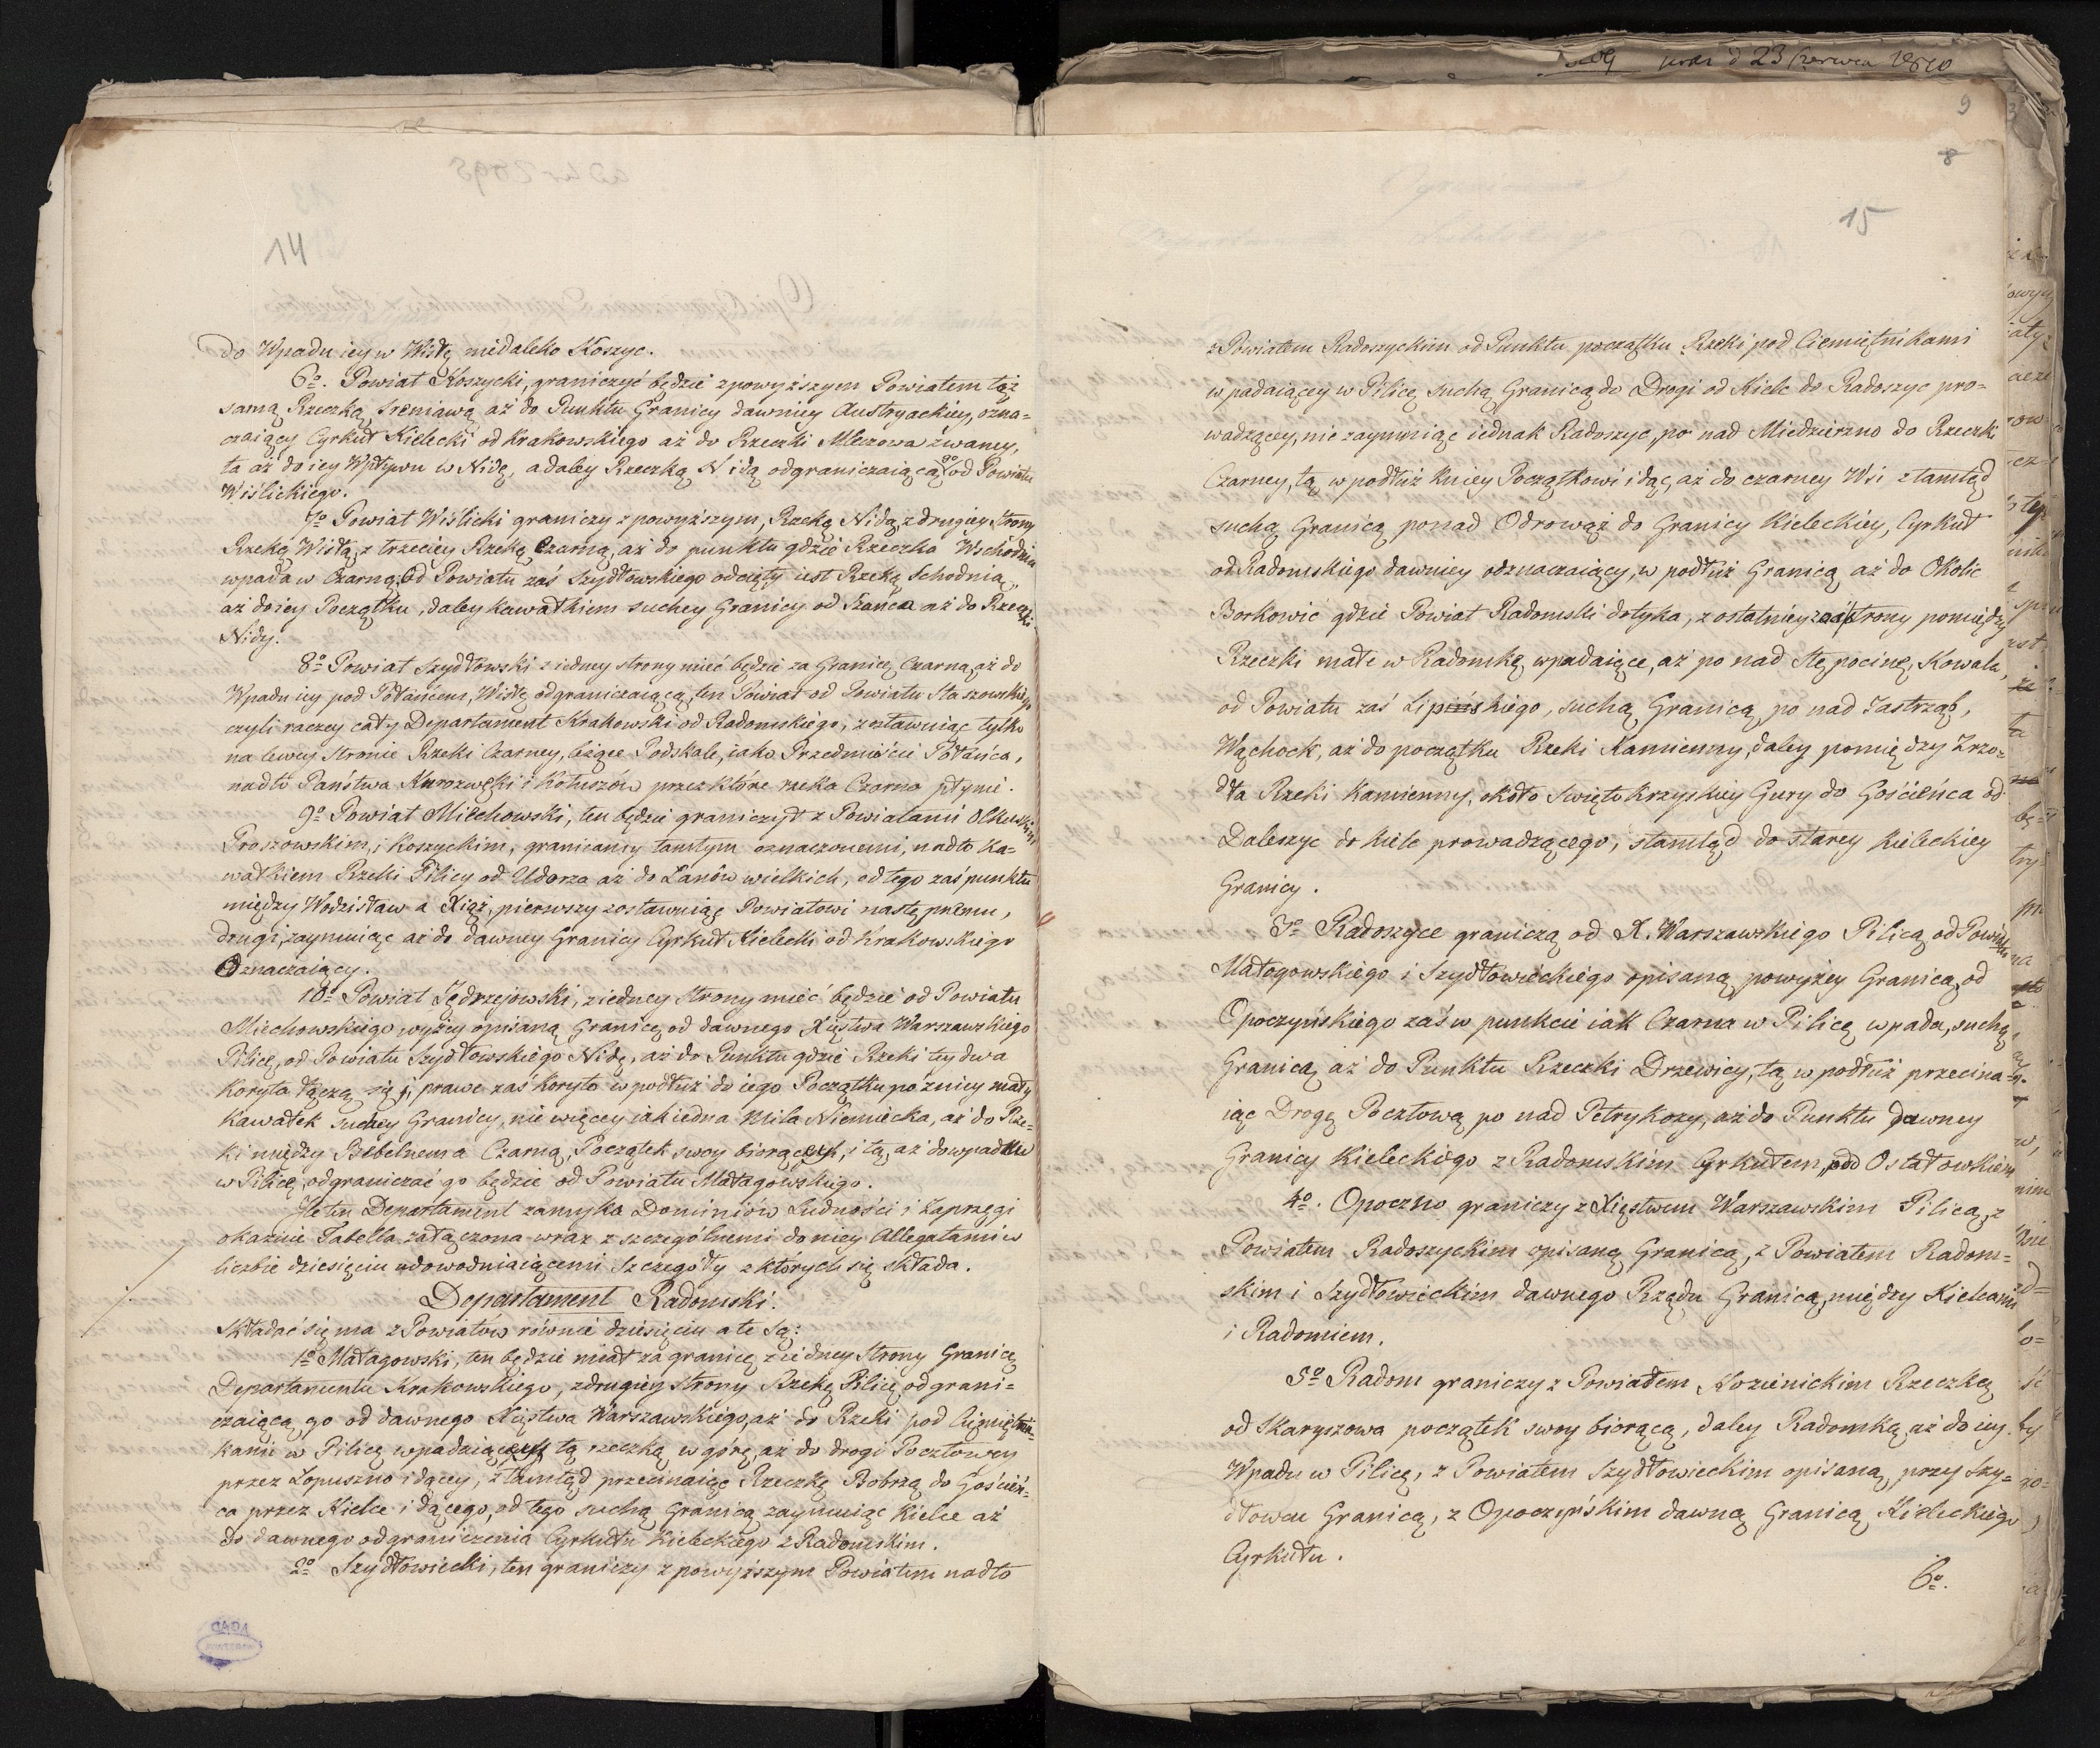 14
do Wpadu iey w Wisłę niedaleko Koszyc.
6o. Powiat Koszycki, graniczyć będzie z powyższym Powiatem taż
samą Rzeczką Sreniawą aż do Punktu Granicy dawniey Austryackiey, ozna=
czaiący Cyrkuł Kielecki od Krakowskiego aż do Rzeczki Mleczowa zwaney,
ta aż do iey Wpływu w Nidę, a daley Rzeczką Nidą odgraniczaiącą go od Powiatu
Wiślickiego.
7o Powiat Wiślicki graniczy z powyższym, Rzeką Nidą, z drugiey Strony
Rzeką Wisłą, z trzeciey Rzeką Czarną, aż do punktu gdzie Rzeczka Wschodnia
wpada w Czarną, Od Powiatu zaś Szydłowskiego odcięty iest Rzeką Schodnią,
aż do iey Początku, daley kawałkiem suchey Granicy od Szańca aż do Rzeczki
Nidy.
8o Powiat Szydłowski z iedney strony mieć będzie za Granicę Czarną, aż do
Wpadu iey pod Połańcem, Wisłę odgraniczaiącą, ten Powiat od Powiatu Staszowskiego
czyli raczey cały Departament Krakowski od Radomskiego, zostawuiąc tylko
na lewey stronie Rzeki Czarney, leżące Podskale, iako Przedmieście Połańca,
nadto Państwa Kurozwęki i Kotuszów przez które rzeka Czarna płynie.
9o Powiat Miechowski, ten będzie graniczył z Powiatami Olkuskim
Proszowskim, i Koszyckim, granicamy tamtym oznaczonemi, nadto ka=
wałkiem Rzeki Pilicy od Udorza aż do Łanów wielkich, od tego zaś punktu
między Wodzisław a Xiąż, pierwszy zostawuiąc Powiatowi następnemu,
drugi zaymuiąc aż do dawney Granicy Cyrkuł Kielecki od Krakowskiego
Oznaczaiący.
10o Powiat Jędrzejowski, z iedney strony mieć będzie od Powiatu
Miechowskiego wyżey opisaną Granicę, od dawnego Xięstwa Warszawskiego
Pilicę, od Powiatu Szydłowskiego Nidę, aż do Punktu gdzie Rzeki tey dwa
Koryta łączą się, prawe zaś Koryto w podłuż do iego Początku po zniey mały
Kawałek suchey Granicy, nie więcey iak iedna Mila Niemiecka, aż do Rze=
ki między Bebelnem a Czarną, Początek swoy biorącey, i tą, aż do wpadu
w Pilicę, odgraniczać go będzie od Powiatu Małagowskiego.
Ile ten Departament zamyka Dominiów Ludności i Zaprzęgi
okazuie Tabella załączona wraz z szczególnemi do niey Allegatami w
liczbie dziesięciu udowodniaiącemi Szczegóły z których się składa.
Departament Radomski.
Składać się ma z Powiatów równie dziesięciu a te są:
1o Małagowski, ten będzie miał za granicę z iedney Strony Granicę
Departamentu Krakowskiego, z drugiey strony Rzekę Pilicę odgrani=
czaiącą go od dawnego Xięstwa Warszawskiego, aż do Rzeki pod Ciemiętni=
kami w Pilicę wpadaiącey tą rzeczką w górę, aż do drogi Pocztowey
przez Łopuszno idącey, z tamtąd przecinaiąc Rzeczkę Bobrzą do Goścień=
ca przez Kielce idącego, od tego suchą Granicą zaymuiąc Kielce aż
do dawnego odgraniczenia Cyrkułu Kieleckiego z Radomskim.
2o Szydłowiecki, ten graniczy z powyższym Powiatem nadto
23 Czerwca 1810
9
8
15
z Powiatem Radoszyckim od Punktu początku Rzeki pod Ciemiętnikami
wpadaiącey w Pilicę suchą Granicą do Drogi od Kielc do Radoszyc pro=
wadzącey, nie zaymuiąc iednak Radoszyc, po nad Miedzierzno do Rzeczki
Czarney, tą w podłuż kuiey Początkowi idąc, aż do czarney Wsi z tamtąd
suchą Granicą ponad Odrowąż do Granicy Kieleckiey, Cyrkuł
od Radomskiego dawniey odznaczaiący, w podłuż Granicą aż do Okolic
Borkowic gdzie Powiat Radomski dotyka, z ostatniey zaś strony pomiędzy
Rzeczki małe w Radomkę wpadaiące, aż po nad Stępocinę, Kowala,
od Powiatu zaś Lipińskiego, suchą Granicą po nad Jastrząb,
Wąchock, aż do początku Rzeki Kamienny, daley pomiędzy Zrzo=
dła Rzeki Kamienny, około Swięto Krzyskiey Gury do Gościeńca od
Daleszyc do Kielc prowadzącego, i stamtąd do starey Kieleckiey
Granicy.
3o Radoszyce graniczą od X. Warszawskiego Pilicą, od Powiatu
Małogowskiego i Szydłowieckiego opisaną powyżey Granicą, od
Opoczyńskiego zaś w punkcie iak Czarna w Pilicę wpada, suchą
Granicą aż do Punktu Rzeczki Drzewicy, tą w podłuż przecina=
iąc Drogę Pocztową po nad Petrykozy, aż do Punktu dawney
Granicy Kieleckiego z Radomskim Cyrkułem, pod Ostałowkiem
4o. Opoczno graniczy z Xięstwem Warszawskim Pilicą, z
Powiatem Radoszyckim opisaną Granicą, z Powiatem Radom=
skim i Szydłowieckim dawnego Rządu Granicą, między Kielcami
i Radomiem.
5o Radom graniczy z Powiatem Kozienickim Rzeczką
od Skaryszowa początek swoy biorącą, daley Radomką aż do iey
Wpadu w Pilicę, z Powiatem Szydłowieckim opisaną przy Szy=
dłowcu Granicą, z Opoczyńskim dawną Granicą Kieleckiego
Cyrkułu.
6o.